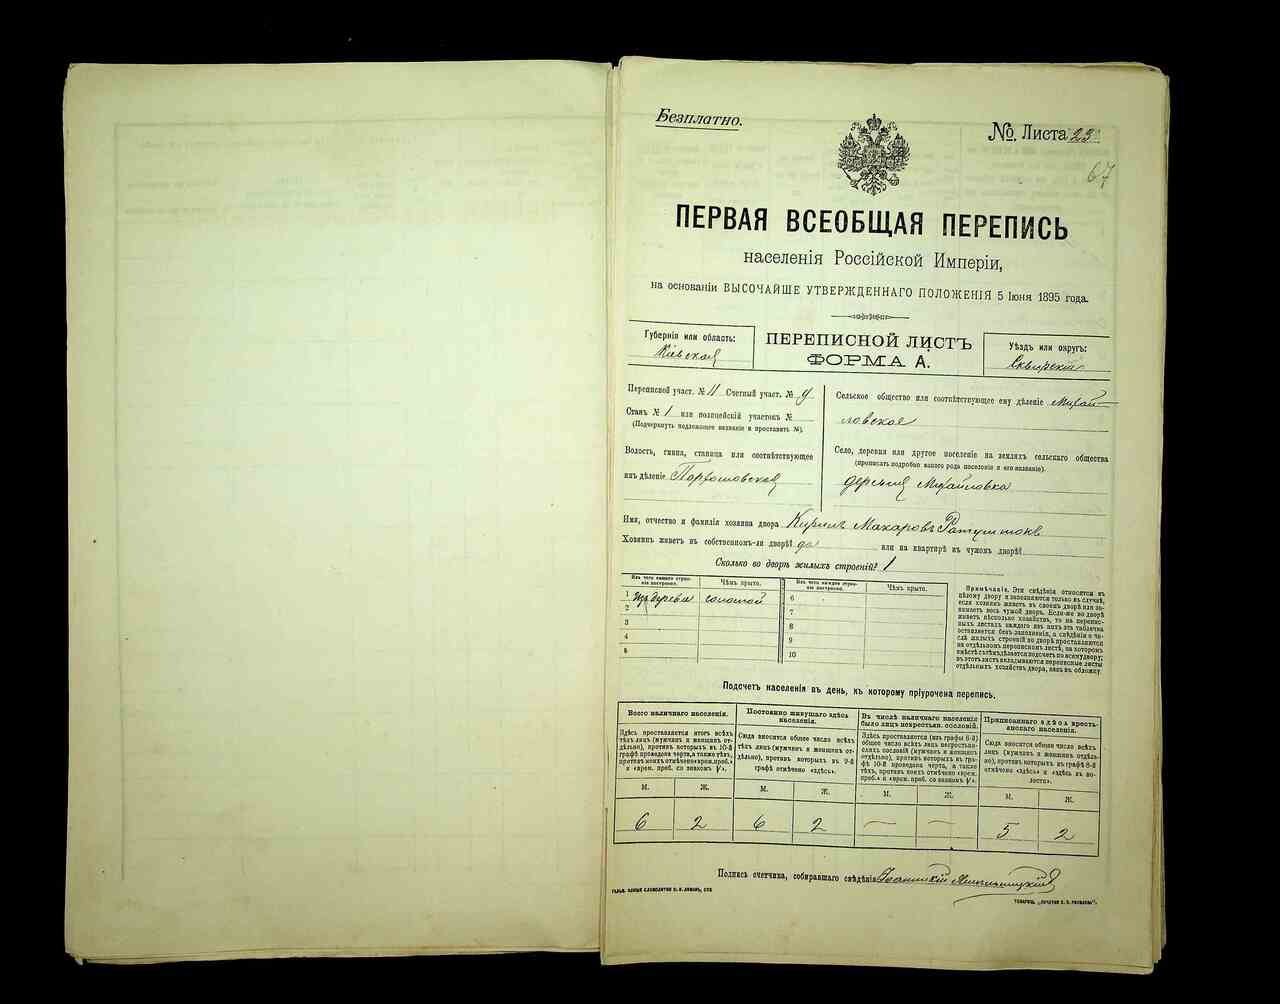 Безплатно.
№. Листа 23
67
ПЕРВАЯ ВСЕОБЩАЯ ПЕРЕПИСЬ
населенія Россійской Имперіи,
на основаніи ВЫСОЧАЙШЕ УТВЕРЖДЕННАГО ПОЛОЖЕНІЯ 5 Іюня 1895 года.
Губернія или область:
Кіевская
ПЕРЕПИСНОЙ ЛИСТЪ
ФОРМА А.
Уѣздъ или округъ:
Сквирскій
Переписной участ. № 11 Счетный участ. № 9
Станъ № 1 или полицейскій участокъ №
(Подчеркнуть подлежащее названіе и проставить №).
Волость, гмина, станица или соотвѣтствующее
имъ дѣленіе
Сельское общество или соотвѣтствующее ему дѣленіе Михай-
ловское
Село, деревня или другое поселеніе на земляхъ сельскаго общества
(прописать подробно какого рода поселеніе и его названіе).
деревня Михайловка
Имя, отчество и фамилія хозяина двора Кирилъ Макаровъ
Хозяинъ живетъ въ собственномъ-ли дворѣ? да или на квартирѣ въ чужомъ дворѣ?
Сколько во дворѣ жилыхъ строеній? 1
Изъ чего каждое строе-
ніе построено.
Чѣмъ крыто.
1 Изъ дерева соломой
2
3
4
5
Изъ чего каждое строе-
ніе построено.
Чѣмъ крыто.
6
7
8
9
10
Примѣчаніе. Эти свѣдѣнія относятся къ
цѣлому двору и заполняются только въ случаѣ,
если хозяинъ живетъ въ своемъ дворѣ или за-
нимаетъ весь чужой дворъ. Если-же во дворѣ
живетъ нѣсколько хозяйствъ, то на перепис-
ныхъ листахъ каждаго изъ нихъ эта табличка
оставляется безъ заполненія, а свѣдѣнія о чи-
слѣ жилыхъ строеній во дворѣ проставляются
на отдѣльномъ переписномъ листѣ, на которомъ
вмѣстѣ съ тѣмъ дѣлается подсчетъ по всему двору;
въ этотъ листъ вкладываются переписные листы
отдѣльныхъ хозяйствъ двора, какъ въ обложку.
Подсчетъ населенія въ день, къ которому пріурочена перепись.
Всего наличнаго населенія.
Здѣсь проставляется итогъ всѣхъ
тѣхъ лицъ (мужчинъ и женщинъ от-
дѣльно), противъ которыхъ въ 10-й
графѣ проведена черта, а также тѣхъ,
противъ коихъ отмѣчено «врем. преб.»
и «врем. преб. со знакомъ V».
М. Ж.
6 2
Постоянно живущаго здѣсь
населенія.
Сюда вносится общее число всѣхъ
тѣхъ лицъ (мужчинъ и женщинъ от-
дѣльно), противъ которыхъ въ 9-й
графѣ отмѣчено «здѣсь».
М. Ж.
6 2
Въ числѣ наличнаго населенія
было лицъ некрестьян. сословій.
Здѣсь проставляется (изъ графы 6-й)
общее число всѣхъ лицъ некрестьян-
скихъ сословій (мужчинъ и женщинъ
отдѣльно), противъ которыхъ въ гра-
фѣ 10-й проведена черта, а также
тѣхъ, противъ коихъ отмѣчено «врем.
преб.» и «врем. преб. со знакомъ V».
М. Ж.
— —
Приписаннаго здѣсь кресть-
янскаго населенія.
Сюда вносится общее число всѣхъ
лицъ (мужчинъ и женщинъ отдѣль-
но), противъ которыхъ въ графѣ 8-й
отмѣчено «здѣсь» и «здѣсь въ во-
лости».
М. Ж.
5 2
Подпись счетчика, собиравшаго свѣдѣнія